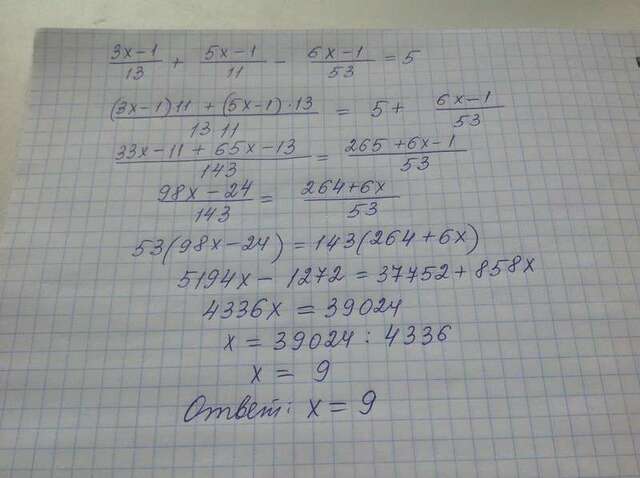 (3x-1)/13 + (5x-1)/11 - (6x-1)/53 = 5
((3x-1)11 + (5x-1)·13)/(13 11) = 5 + (6x-1)/53
(33x-11+65x-13)/143 = (265+6x-1)/53
(98x-24)/143 = (264+6x)/53
53(98x-24)=143(264+6x)
5194x - 1272 = 37752+858x
4336x = 39024
x = 39024 : 4336
x = 9
Ответ: x = 9